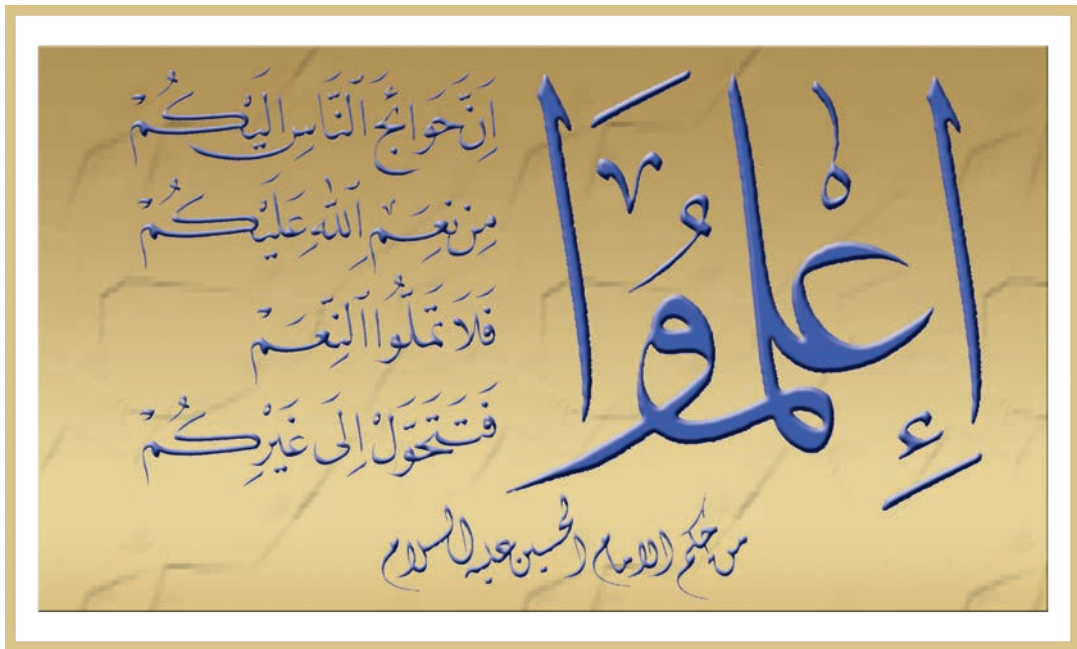 إِعْلَمُوا
اِنَّ حَوَائِجَ ٱلنَّاسِ اِلَيْكُمْ
مِنْ نِعَمِ ٱللّٰهِ عَلَيْكُمْ
فَلَا تَمَلُّوا ٱلنِّعَمْ
فَتَتَحَوَّلْ اِلَى غَيْرِكُمْ
من حكم الامام الحسين عليه السلام